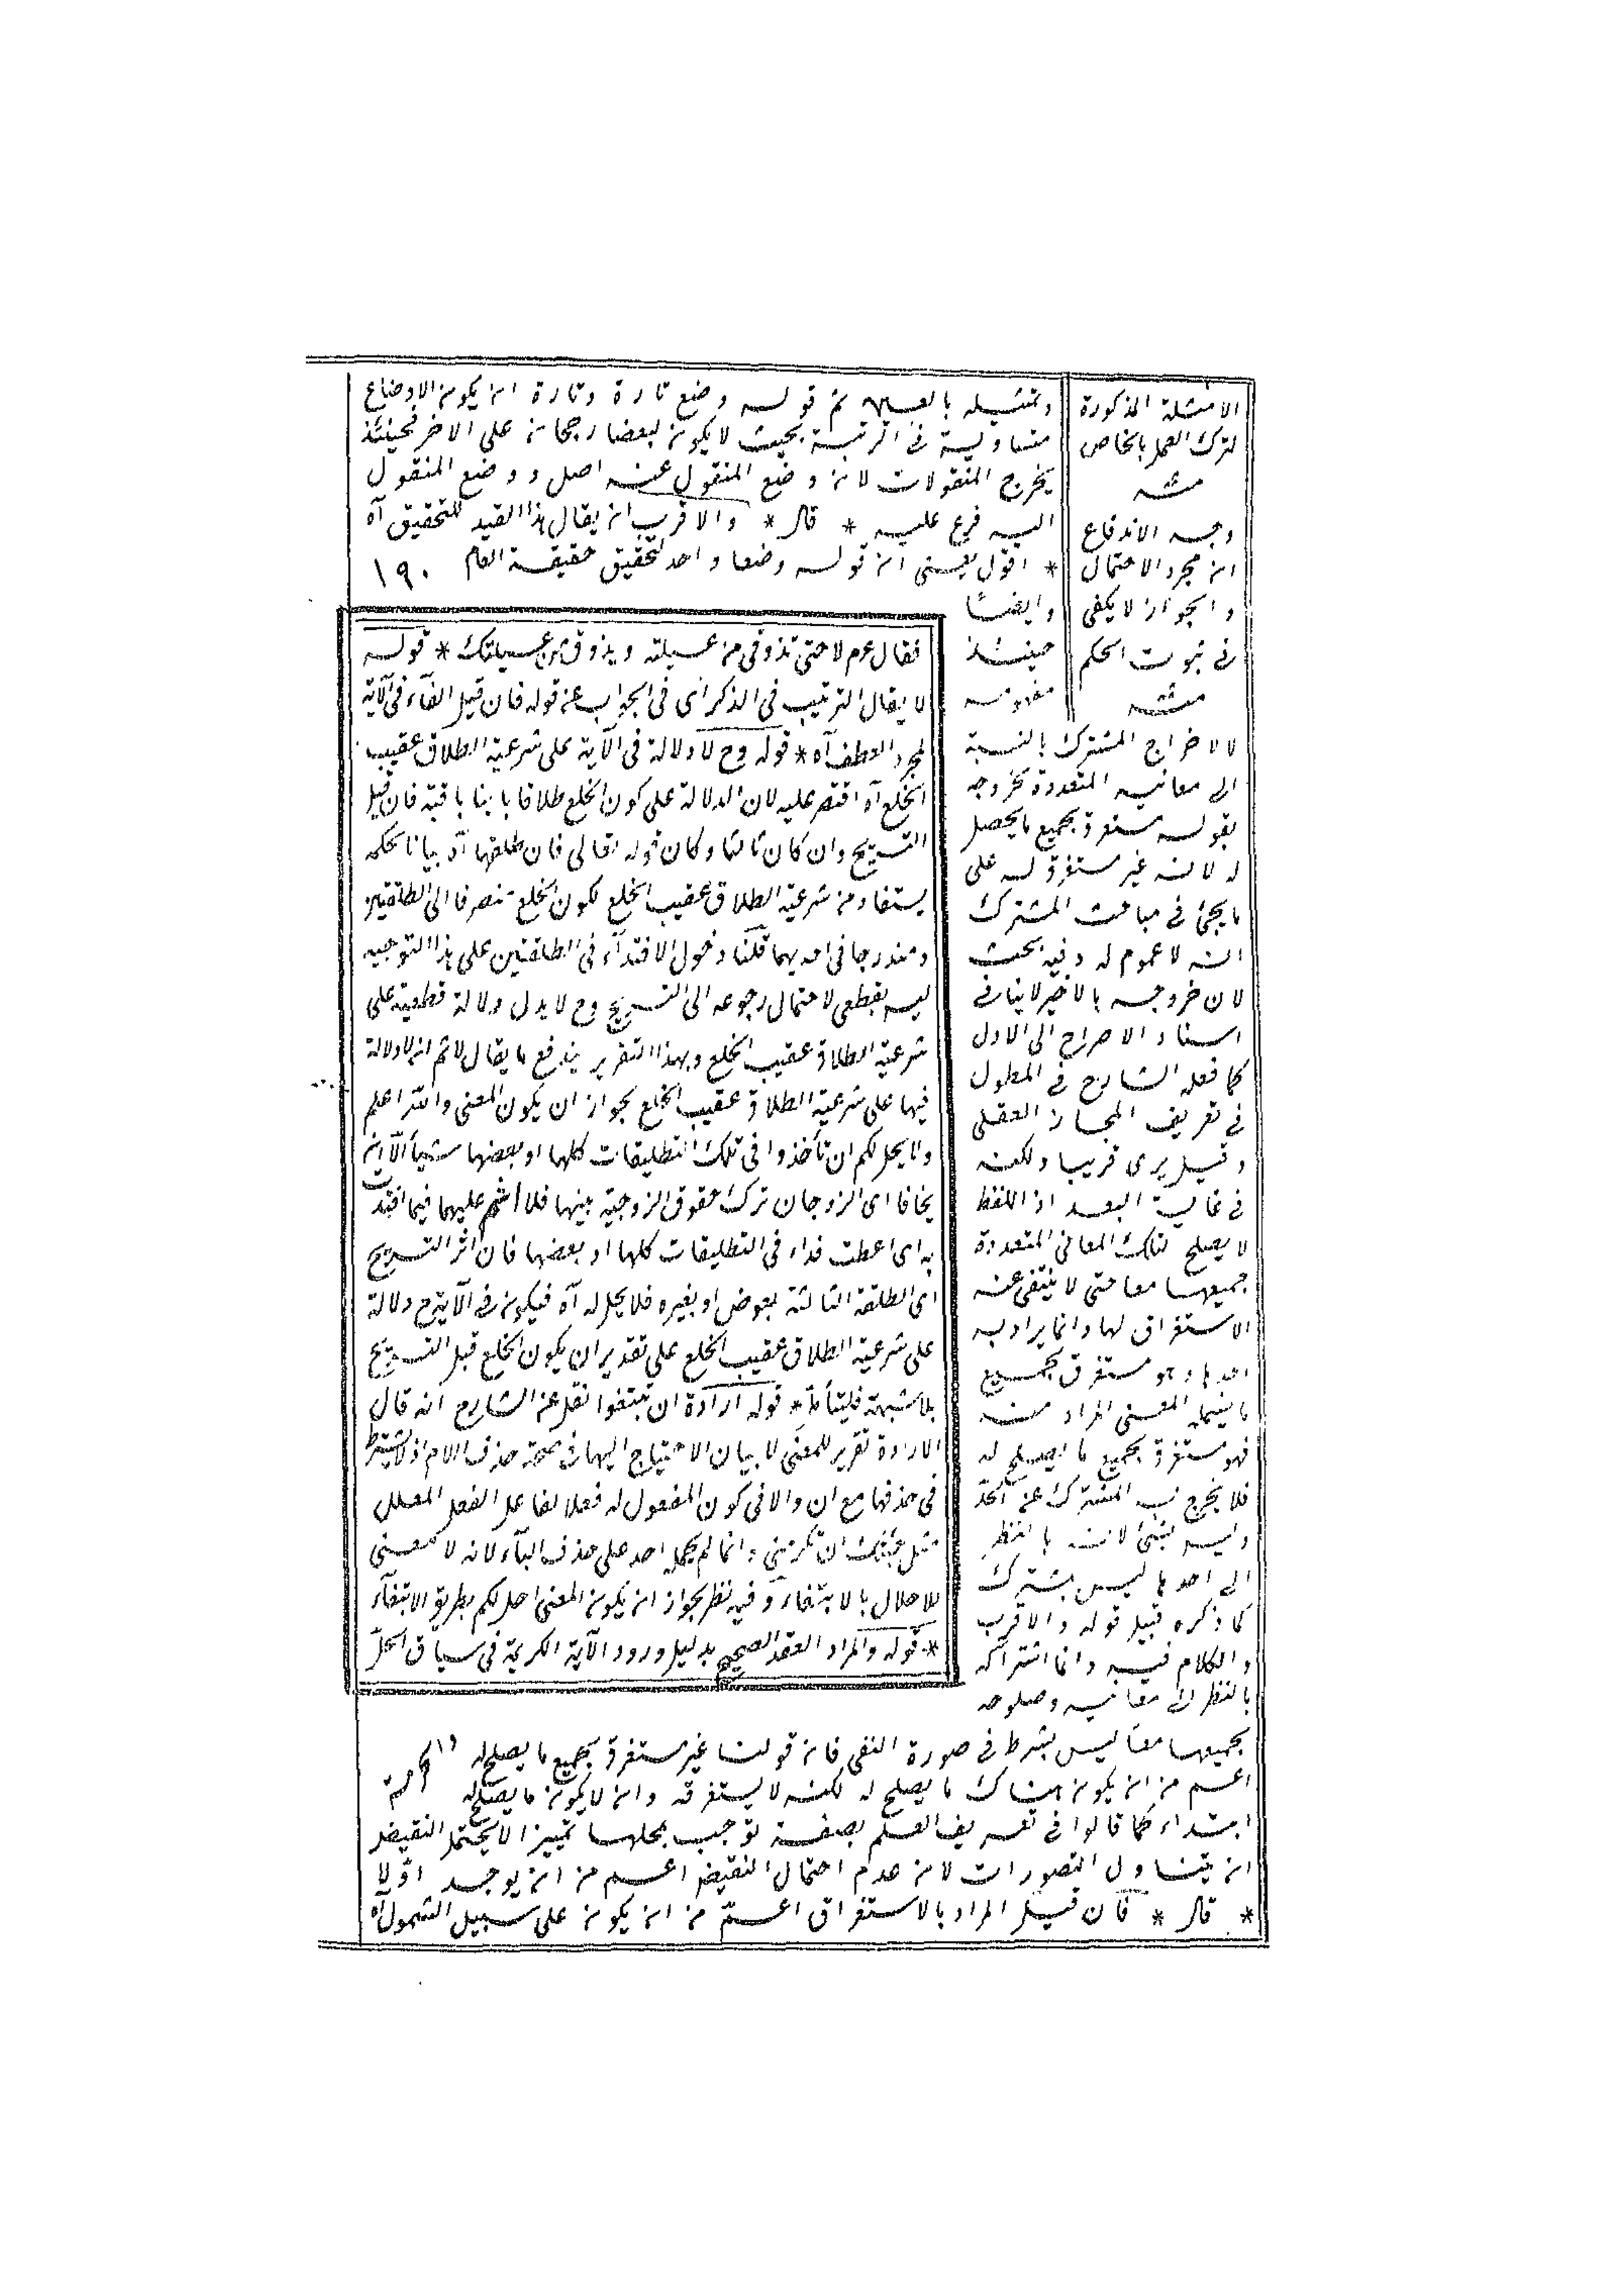 وتمثيله بالعين ثم قوله وضع تارة وتارة ان يكون الاوضاع
متساوية في الرتبة بحيث لا يكون لبعضها رجحان على الاخر فحينئذ
يخرج المنقولات لان وضع المنقول عنه اصل ووضع المنقول
اليه فرع عليه * قال * والاقرب ان يقال هذا القيد للتحقيق آه
* اقول يعني ان قوله وضعا واحدا لتحقيق حقيقة العام ١٩٠
وايضا
حينئذ
لا لاخراج المشترك بالنسبة
الى معانيه المتعددة لخروجه
بقوله مستغرق لجميع ما يصلح
له لانه غير مستغرق له على
ما يجئ في مباحث المشترك
انه لا عموم له وفيه بحث
لان خروجه بالاخير لا ينافي
اسناد الاخراج الى الاول
كما فعله الشارح في المطول
في تعريف المجاز العقلي
وقيل يرى قريبا ولكنه
في غاية البعد اذ اللفظ
لا يصلح لتلك المعاني المتعددة
جميعها معا حتى لا ينتفي عنه
الاستغراق لها وانما يراد به
احدها وهو مستغرق لجميع
ما يشمله المعنى المراد منه
فهو مستغرق لجميع ما يصلح له
فلا يخرج به المشترك عن الحد
وليس بشئ لانه بالنظر
الى احدها ليس بمشترك
كما ذكره قبيل قوله والاقرب
والكلام فيه وانما اشتراكه
بالنظر الى معانيه وصلوحه
لجميعها معا ليس بشرط في صورة النفي فان قولنا غير مستغرق لجميع ما يصلح له
اعم من ان يكون هناك ما يصلح له لكنه لا يستغرقه وان لا يكون ما يصلح له
ابتداء كما قالوا في تعريف العلم بصفة توجب لمحلها تمييزا لا يحتمل النقيض
انه يتناول التصورات لان عدم احتمال النقيض اعم من ان يوجد اولا
* قال * فان قيل المراد بالاستغراق اعم من ان يكون على سبيل الشمول آه
الامثلة المذكورة
لترك العمل بالخاص
منه
وجه الاندفاع
ان مجرد الاحتمال
والجواز لا يكفي
في ثبوت الحكم
منه
فقال عم لا حتى تذوقي من عسيلته ويذوق من عسيلتك * قوله
لا يقال الترتيب في الذكر اى في الجواب عن قوله فان قيل الفاء في الآية
لمجرد العطف آه * قوله وح لا دلالة في الآية على شرعية الطلاق عقيب
الخلع آه اقتصر عليه لان الدلالة على كون الخلع طلاقا باينا باقية فان قيل
التسريح وان كان ثالثا وكان قوله تعالى فان طلقها آه بيانا لحكمه
يستفاد من شرعية الطلاق عقيب الخلع لكون الخلع منصرفا الى الطلقتين
ومندرجا في احديهما قلنا دخول الافتداء في الطلقتين على هذا التوجيه
ليس بقطعي لاحتمال رجوعه الى التسريح وح لا يدل دلالة قطعية على
شرعية الطلاق عقيب الخلع وبهذا التقرير يندفع ما يقال لا ثم انه لا دلالة
فيها على شرعية الطلاق عقيب الخلع لجواز ان يكون المعنى والله اعلم
ولا يحل لكم ان تأخذوا في تلك التطليقات كلها او بعضها شيئا الا ان
يخافا اى الزوجان ترك حقوق الزوجية بينهما فلا اثم عليهما فيما افتدت
به اى اعطت فداء في التطليقات كلها او بعضها فان آثر التسريح
اى الطلقة الثالثة بعوض او بغيره فلا يحل له آه فيكون في الآية ح دلالة
على شرعية الطلاق عقيب الخلع على تقدير ان يكون الخلع قبل التسريح
بلا شبهة فليتأمل * قوله ارادة ان تبتغوا نقل عن الشارح انه قال
الارادة تقرير للمعنى لا بيان الاحتياج اليها في صحة حذف اللام اذ لا يشترط
في حذفها مع ان والا في كون المفعول له فعلا لفاعل الفعل المعلل
مثل جئتك ان تكرمني وانما لم يحمله احد على حذف الباء لانه لا معنى
للاحلال بالابتغاء وفيه نظر لجواز ان يكون المعنى احل لكم بطريق الابتغاء
* قوله والمراد العقد الصحيح بدليل ورود الآية الكريمة في سياق الحل